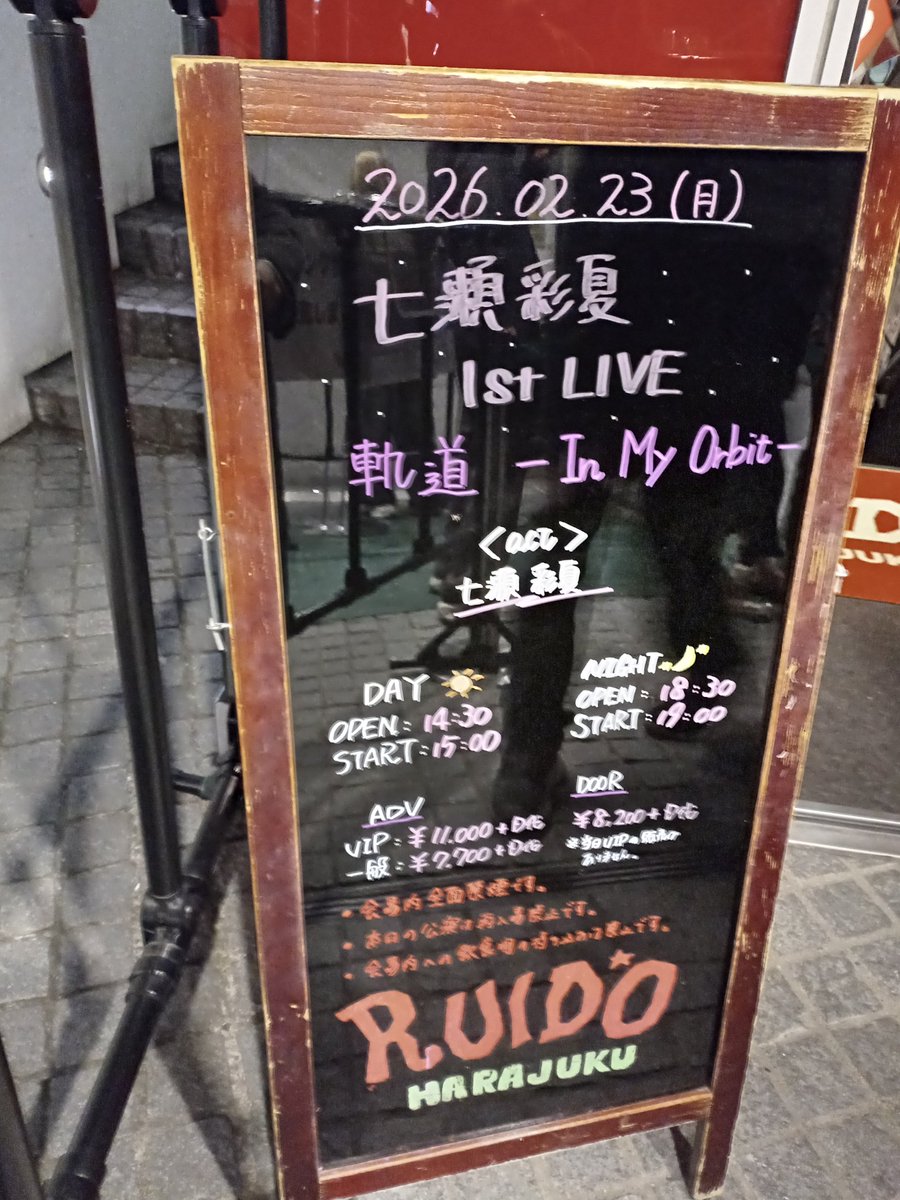 2026.02.23(月)
七瀬彩夏
1st LIVE
軌道 -In My Orbit-
<act>
七瀬彩夏
DAY
OPEN:14:30
START:15:00
NIGHT
OPEN:18:30
START:19:00
ADV
VIP:¥11,000+D代
一般:¥7,700+D代
DOOR
¥8,200+D代
※当日VIPの販売は
ありません。
・会場内全面禁煙です。
・本日の公演は再入場禁止です。
・会場内への飲食物の持ち込みは禁止です。
RUIDO
HARAJUKU